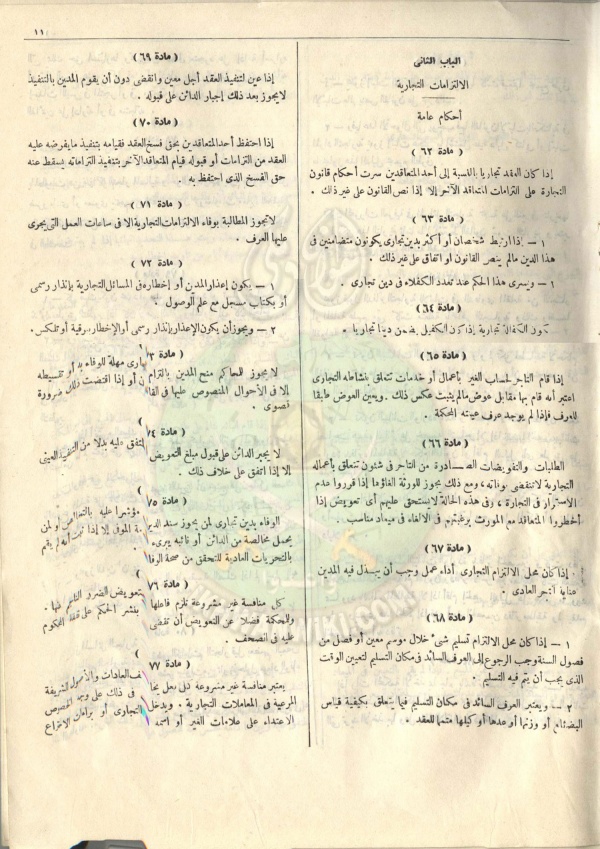 ١١
الباب الثانى
الالتزامات التجارية
أحكام عامة
( مادة ٦٢ )
إذا كان العقد تجاريا بالنسبة إلى أحد المتعاقدين سرت أحكام قانون
التجارة على التزامات المتعاقد الآخر إلا إذا نص القانون على غير ذلك .
( مادة ٦٣ )
١ — إذا ارتبط شخصان أو أكثر بدين تجارى يكونون متضامنين فى
هذا الدين مالم ينص القانون أو اتفاق على غير ذلك .
١ — ويسرى هذا الحكم عند تعدد الكفلاء فى دين تجارى .
( مادة ٦٤ )
تكون الكفالة تجارية إذا كان الكفيل يضمن دينا تجاريا .
( مادة ٦٥ )
إذا قام التاجر لحساب الغير بأعمال أو خدمات تتعلق بنشاطه التجارى
اعتبر أنه قام بها مقابل عوض مالم يثبت عكس ذلك . ويعين العوض طبقا
للعرف فإذا لم يوجد عرف عينته المحكمة .
( مادة ٦٦ )
الطلبات والتفويضات الصادرة من التاجر فى شئون تتعلق بأعماله
التجارية لا تنقضى بوفاته ، ومع ذلك يجوز للورثة الغاؤها إذا قرروا عدم
الاستمرار فى التجارة ، وفى هذه الحالة لا يستحق عليهم أى تعويض إذا
أخطروا المتعاقد مع المورث برغبتهم فى الالغاء فى ميعاد مناسب .
( مادة ٦٧ )
إذا كان محل الالتزام التجارى أداء عمل وجب أن يبذل فيه المدين
عناية التاجر العادى .
( مادة ٦٨ )
١ — إذا كان محل الالتزام تسليم شئ خلال موسم معين أو فصل من
فصول السنة وجب الرجوع إلى العرف السائد فى مكان التسليم لتعيين الوقت
الذى يجب أن يتم فيه التسليم .
٢ — ويعتبر العرف السائد فى مكان التسليم فيما يتعلق بكيفية قياس
البضائع أو وزنها أو عدها أو كيلها متمما للعقد .
( مادة ٦٩ )
إذا عين لتنفيذ العقد أجل معين وانقضى دون أن يقوم المدين بالتنفيذ
لايجوز بعد ذلك إجبار الدائن على قبوله .
( مادة ٧٠ )
إذا احتفظ أحد المتعاقدين بحق فسخ العقد فقيامه بتنفيذ مايفرضه عليه
العقد من التزامات أو قبوله قيام المتعاقد الآخر بتنفيذ التزاماته يسقط عنه
حق الفسخ الذى احتفظ به .
( مادة ٧١ )
لاتجوز المطالبة بوفاء الالتزامات التجارية الا فى ساعات العمل التى يجرى
عليها العرف .
( مادة ٧٢ )
١ — يكون إعذار المدين أو إخطاره فى المسائل التجارية بإنذار رسمى
أو بكتاب مسجل مع علم الوصول .
٢ — ويجوز أن يكون الإعذار بإنذار رسمى أو الإخطار ببرقية أو تلكس .
( مادة ٧٣
لا يجوز للحاكم منح المدين بالتزام تجارى مهلة للوفاء به أو تقسيطه
إلا فى الأحوال المنصوص عليها فى القانون أو إذا اقتضت ذلك ضرورة
قصوى .
( مادة ٧٤
لا يجبر الدائن على قبول مبلغ التعويض المتفق عليه بدلا من التنفيذ العينى
إلا إذا اتفق على خلاف ذلك .
مادة ٧٥
الوفاء بدين تجارى لمن يحوز سند الدين مؤشرا عليه بالتخالص أو لمن
يحمل مخالصة من الدائن أو نائبه يبرىء ذمة الموفى إلا إذا ثبت أنه لم يقم
بالتحريات العادية للتحقق من صحة الوفاء
مادة ٧٦
كل منافسة غير مشروعة تلزم فاعلها بتعويض الضرر الناجم عنها .
وللمحكمة فضلا عن التعويض أن تقضى بنشر الحكم على نفقة المحكوم
عليه فى الصحف .
مادة ٧٧
يعتبر منافسة غير مشروعة كل فعل يخالف العادات والأصول الشريفة
المرعية فى المعاملات التجارية . ويدخل فى ذلك على وجه الخصوص
الاعتداء على علامات الغير أو اسمه التجارى أو براءات الاختراع